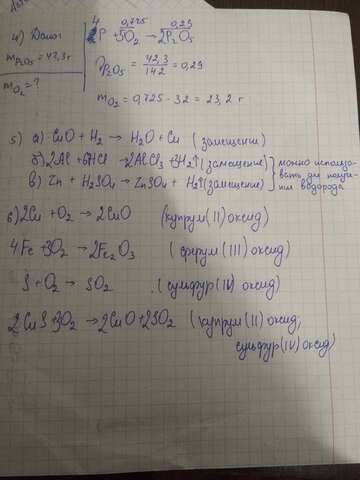 4) Дано:
m P₂O₅ = 42,3 г
m O₂ = ?
4 0,725 0,29
P + 5O₂ → 2P₂O₅
n P₂O₅ = 42,3 / 142 = 0,29
m O₂ = 0,725 · 32 = 23,2 г
5) а) CuO + H₂ → H₂O + Cu (замещение)
б) 2Al + 6HCl → 2AlCl₃ + 3H₂↑ (замещение)
в) Zn + H₂SO₄ → ZnSO₄ + H₂↑ (замещение)
можно использо-
вать для получе-
ния водорода
6) 2Cu + O₂ → 2CuO (купрум (II) оксид)
4Fe + 3O₂ → 2Fe₂O₃ (ферум (III) оксид)
S + O₂ → SO₂ (сульфур (IV) оксид)
2CuS + 3O₂ → 2CuO + 2SO₂ (купрум (II) оксид,
сульфур (IV) оксид)